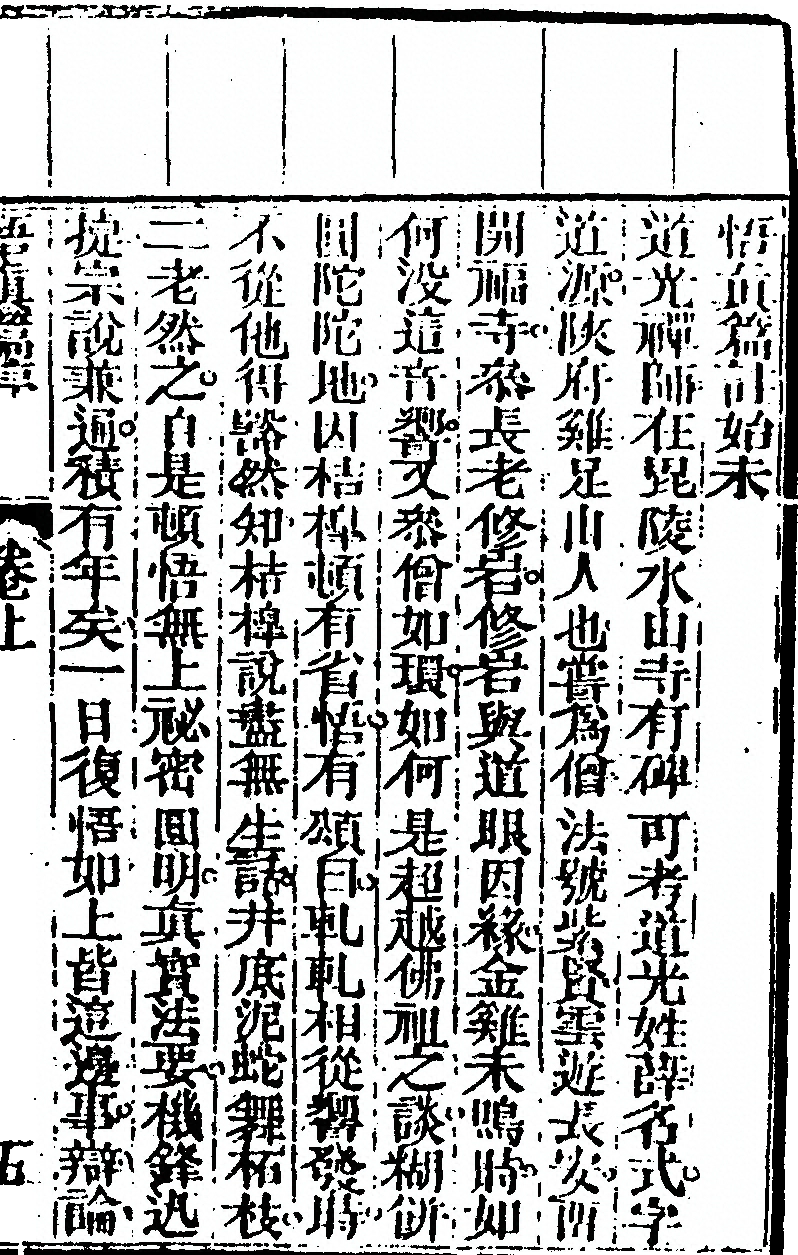 悟真篇註始末
道光禪師在毘陵水山寺有碑可考道光姓薛名式字
道源陝府雞足山人也嘗爲僧法號紫賢雲遊長安西
開福寺叅長老修岩修岩與道眼因緣金雞未鳴時如
何没這音響又叅僧如環如何是超越佛祖之談糊餅
圓陀陀地因桔槔頓有省悟有頌曰軋軋相從響發時
不從他得豁然知桔槔說盡無生話井底泥蛇舞柘枝
二老然之自是頓悟無上祕密圓明真實法要機鋒迅
捷宗說兼通積有年矣一日復悟如上皆這邊事辯論
悟真篇
卷上
五